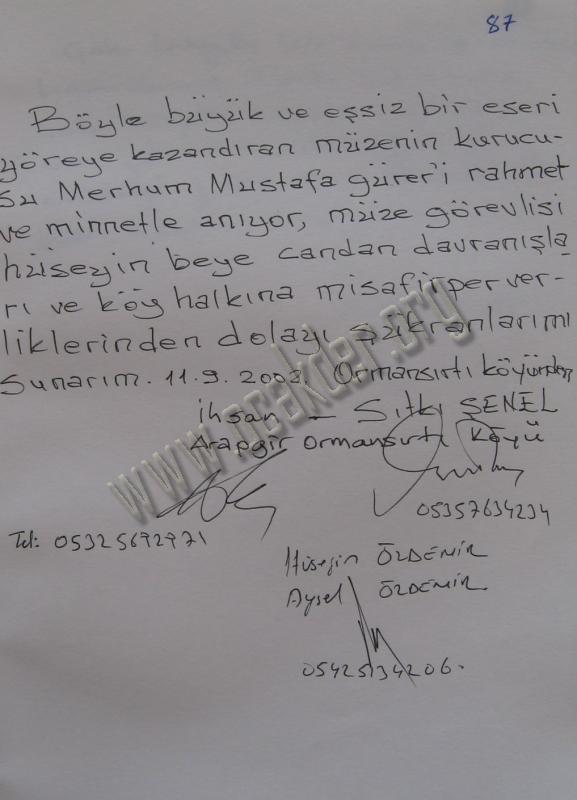 87
Böyle büyük ve eşsiz bir eseri
yöreye kazandıran müzenin kurucu-
su Merhum Mustafa gürer'i rahmet
ve minnetle anıyor, müze görevlisi
hüseyin beye candan davranışla
rı ve köy halkına misafirperver-
liklerinden dolayı şükranlarımı
Sunarım. 11.9.2003. Ormansırtı köyünden
İhsan – Sıtkı ŞENEL
Arapgir Ormansırtı Köyü
05357634234
Tel: 05325692971
Hüseyin ÖZDEMİR
Aysel ÖZDEMİR
05425134206.
www.ocakder.org